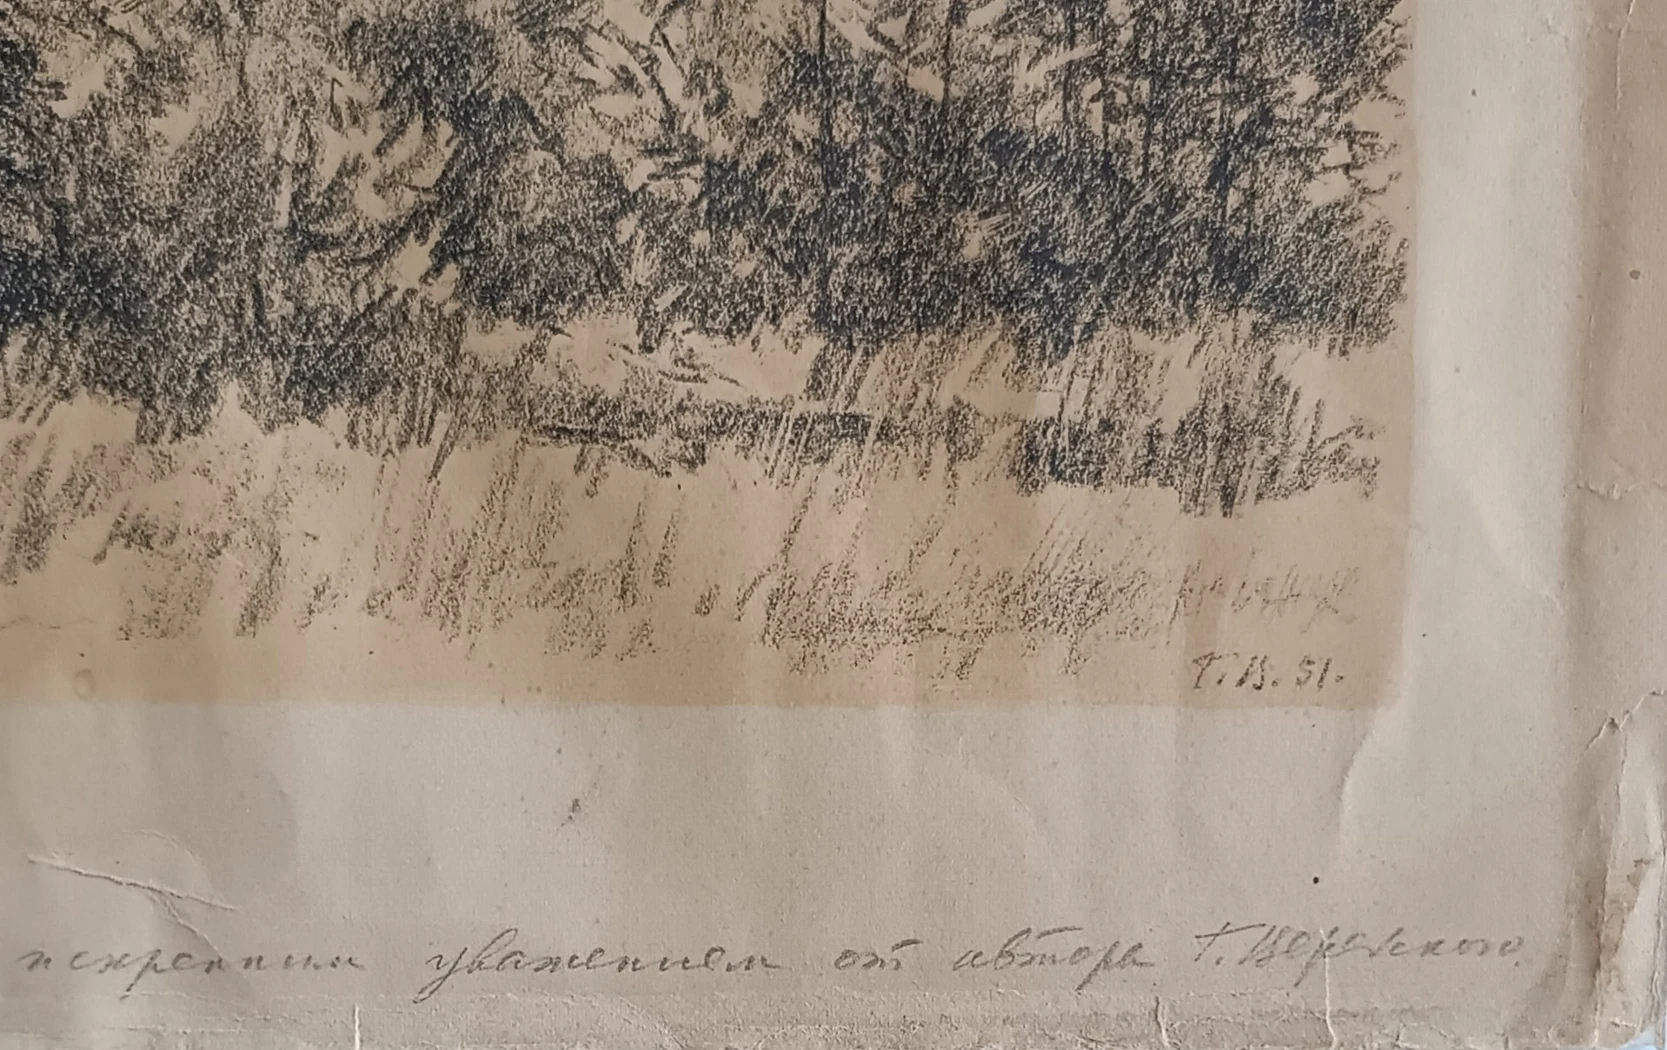 Г.В. 51.
искренним уважением от автора Г. Верейского.